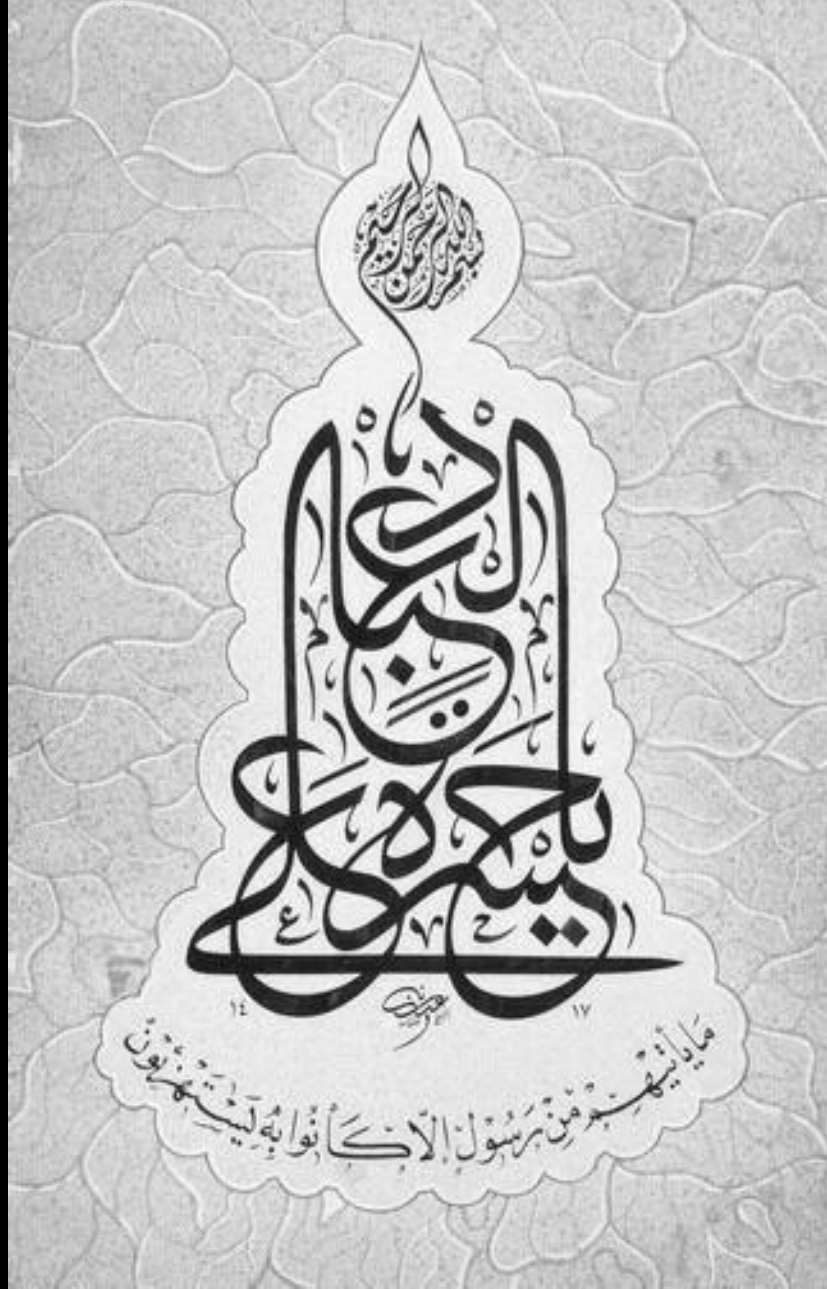 بسم الله الرحمن الرحيم
يا حسرة على العباد
١٤ ١٧
مَا يَأْتِيهِمْ مِنْ رَسُولٍ إِلَّا كَانُوا بِهِ يَسْتَهْزِئُونَ